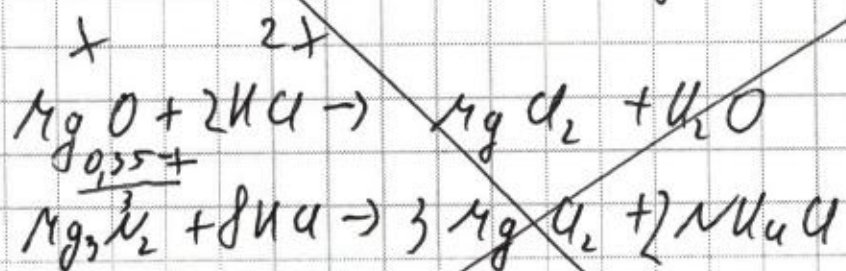 x 2x
MgO + 2HCl → MgCl₂ + H₂O
0,35-x
3
Mg₃N₂ + 8HCl → 3MgCl₂ + 2NH₄Cl